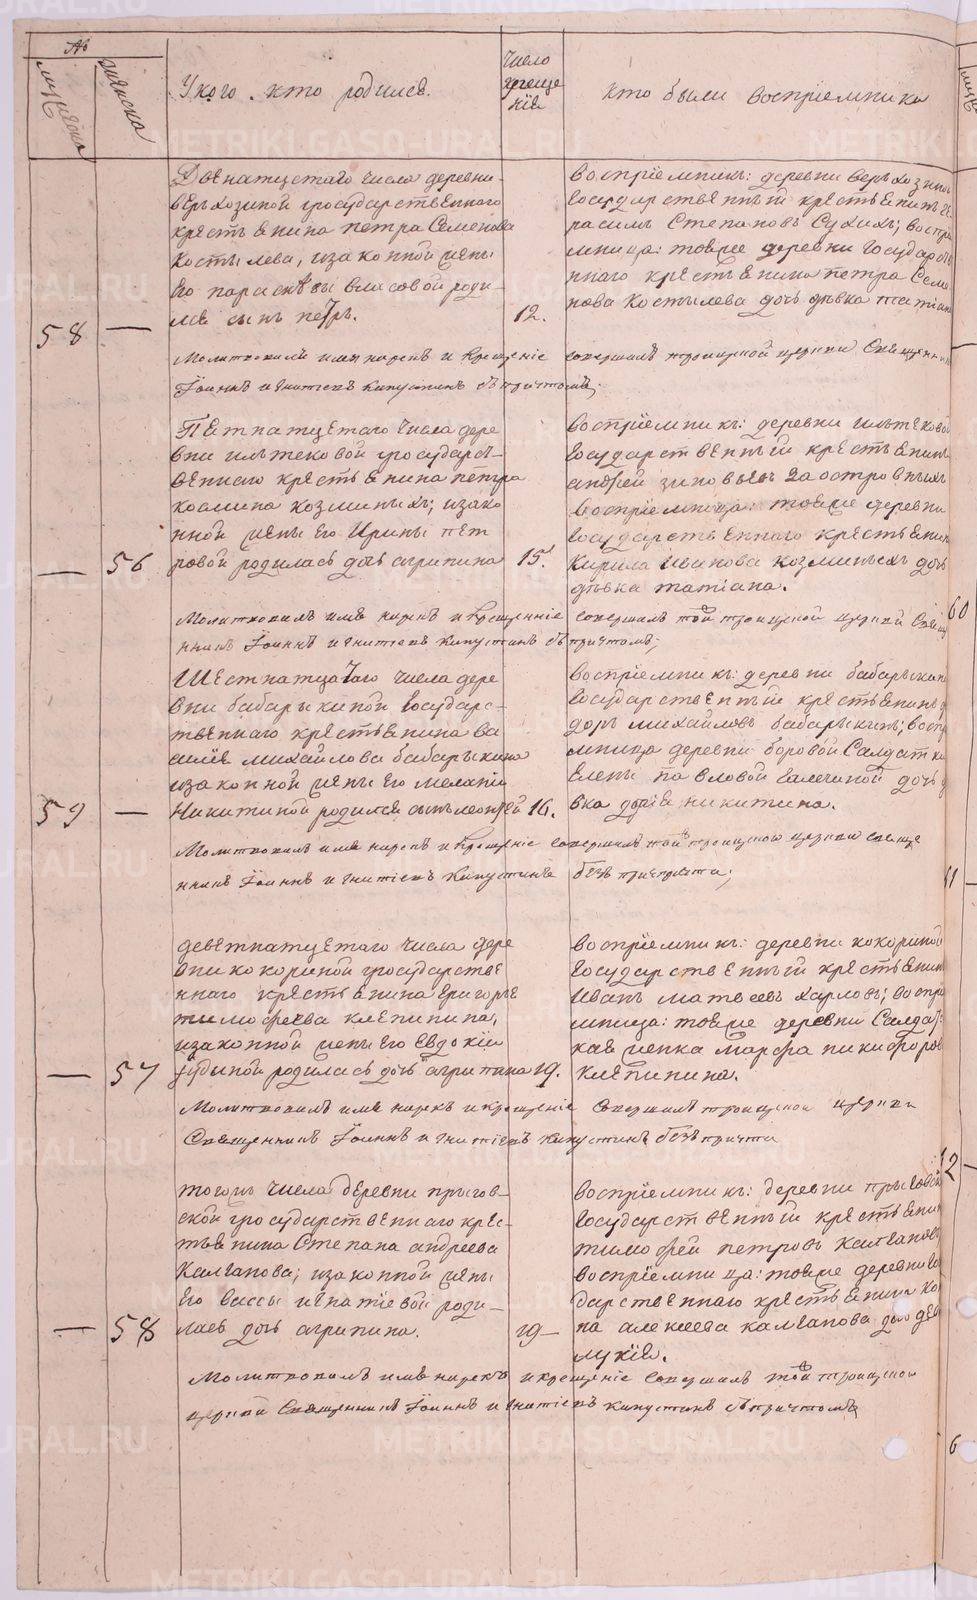 №
мужеска
женска
У кого кто родился.
Число
креще
нїя
кто были восприемники
Двенатцетаго числа деревни
верхозиной государственного
крестьянина петра Семенова
Костылева, иза конной жены
Его параскевы власовой роди-
лся сынъ петръ.
58
—
12.
восприемникъ: деревни верьхозиной
государственный крестьянинъ
расимъ Степановъ Сухихъ; воспрї
мница: тояже деревни государстве
ннаго крестьянина петра Семе
нова Костылева дочь девка татїана
Молитвовалъ имя нарекъ и Крещенїе совершалъ троицкой церкви Священникъ
Їоаннъ игнатїевъ Капустинъ съ причтомъ;
Петнатцетаго числа дере
вни илтековой государст-
веннаго крестьянина петра
козминыхъ; изако
нной жены Его Ирины пет
ровой родилась дочь агрипина
—
56
15.
восприемникъ: деревни
государственный крестьянинъ
андрей зиновьевъ Заостровныхъ
восприемница: тояже деревни
государственнаго крестьянин
Кирила Иванова козминыхъ дочь
девка татїана.
Молитвовалъ имя нарекъ и Крещенїе совершалъ той троицкой церкви Свяще
нникъ Їоаннъ игнатїевъ Капустинъ съ причтомъ;
60
Шестнатцатаго числа дере
вни бабарыкиной государс-
твеннаго крестьянина ва
силїя михайлова бабарыкина
иза конной жены Его меланїи
Никитиной родился сынъ леонтей
59
—
16.
восприемникъ: деревни бабарыкиной
государственный крестьянинъ
доръ михайловъ бабарыкинъ; воспр
мница деревни боровой Салдатки
Елены павловой галечиной дочь
вка дарїя никитина.
Молитвовалъ имя нарекъ и Крещенїе совершалъ той троицкой церкви свяще
нникъ Їоаннъ игнатїевъ Капустинъ безъ причта;
61
деветнатцетаго числа дере
вни кокориной государстве
ннаго крестьянина григорье
тимофеева клепинина,
иза конной жены Его Евдокїи
родилась дочь агрипина
—
57
19.
восприемникъ: деревни кокориной
государственный крестьянинъ
Иванъ матвеевъ Харловъ; воспрї
мница: тояже деревни Салдат-
кая женка Марфа никифоров
клепинина.
Молитвовалъ имя нарекъ и крещенїе совершалъ троицкой церкви
Священникъ Їоаннъ игнатїевъ Капустинъ безъ причта
62
тогожъ числа деревни прыгов-
ской государственнаго крес-
тьянина Степана андреева
Калганова; иза конной жены
Его вассы игнатїевой роди-
лась дочь агрипина.
—
58
19—
восприемникъ: деревни прыговской
государственный крестьянин
тимофей петровъ калгановъ
восприемница: тояже деревни госу
дарственнаго крестьянина ко
на алексеева калганова дочь дев
лукїя.
Молитвовалъ имя нарекъ и крещенїе совершалъ той троицкой
церкви Священникъ Їоаннъ игнатїевъ капустинъ съ причтомъ
6
METRIKI.GASO-URAL.RU